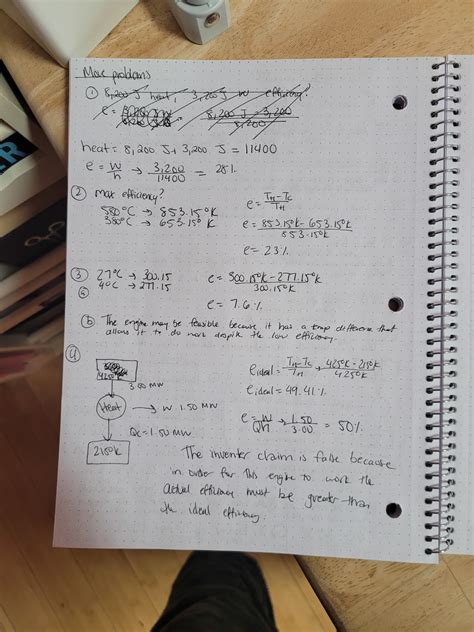 More problems
① 8,200 J heat, 3,200 J w efficiency?
e = 8,200 - 3,200 / 8,200
heat = 8,200 J + 3,200 J = 11400
e = W/h → 3,200/11400 = 28%
② max efficiency?
580°C → 853.15°K
380°C → 653.15°K
e = TH - TC / TH
e = 853.15°K - 653.15°K / 853.15°K
e = 23%
③ 27°C → 300.15
ⓐ 4°C → 277.15
e = 300.15°K - 277.15°K / 300.15°K
e = 7.6%
ⓑ The engine may be feasible because it has a temp difference that
allows it to do work despite the low efficiency.
④
425°K
3.00 MW
Heat → W 1.50 MW
Qc = 1.50 MW
215°K
e ideal = TH - TC / TH → 425°K - 215°K / 425°K
e ideal = 49.41%
e = W/QH → 1.50/3.00 = 50%
The inventer claim is false because
in order for this engine to work the
actual efficiency must be greater than
the ideal efficiency